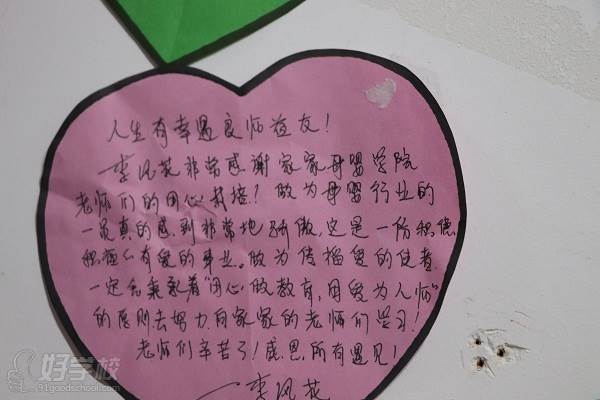 人生有幸遇良师益友!
李凤花非常感谢家家母婴学院
老师们的用心栽培!做为母婴行业的
一员真的感到非常地骄傲,这是一份积德
积福有爱的事业。做为传播爱的使者
一定会秉承着“用心做教育,用爱为人师”
的原则去努力向家家的老师们学习!
老师们辛苦了!感恩所有遇见!
一李凤花
好学校
91goodschool.com